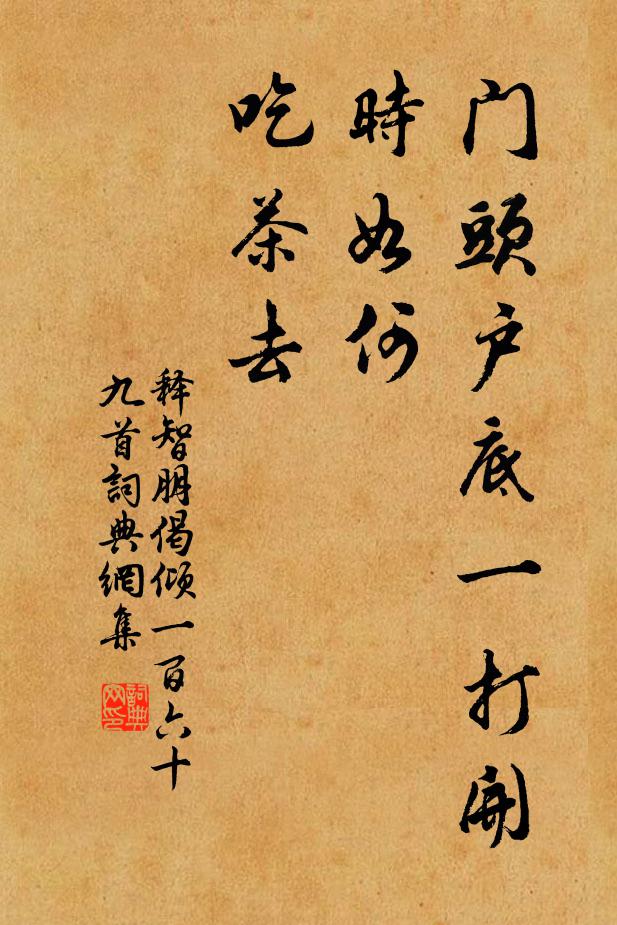 门頭户底一打開
時如何
吃茶去
释智朋偈倾一百六十
九首詞典網集
詞典
网印